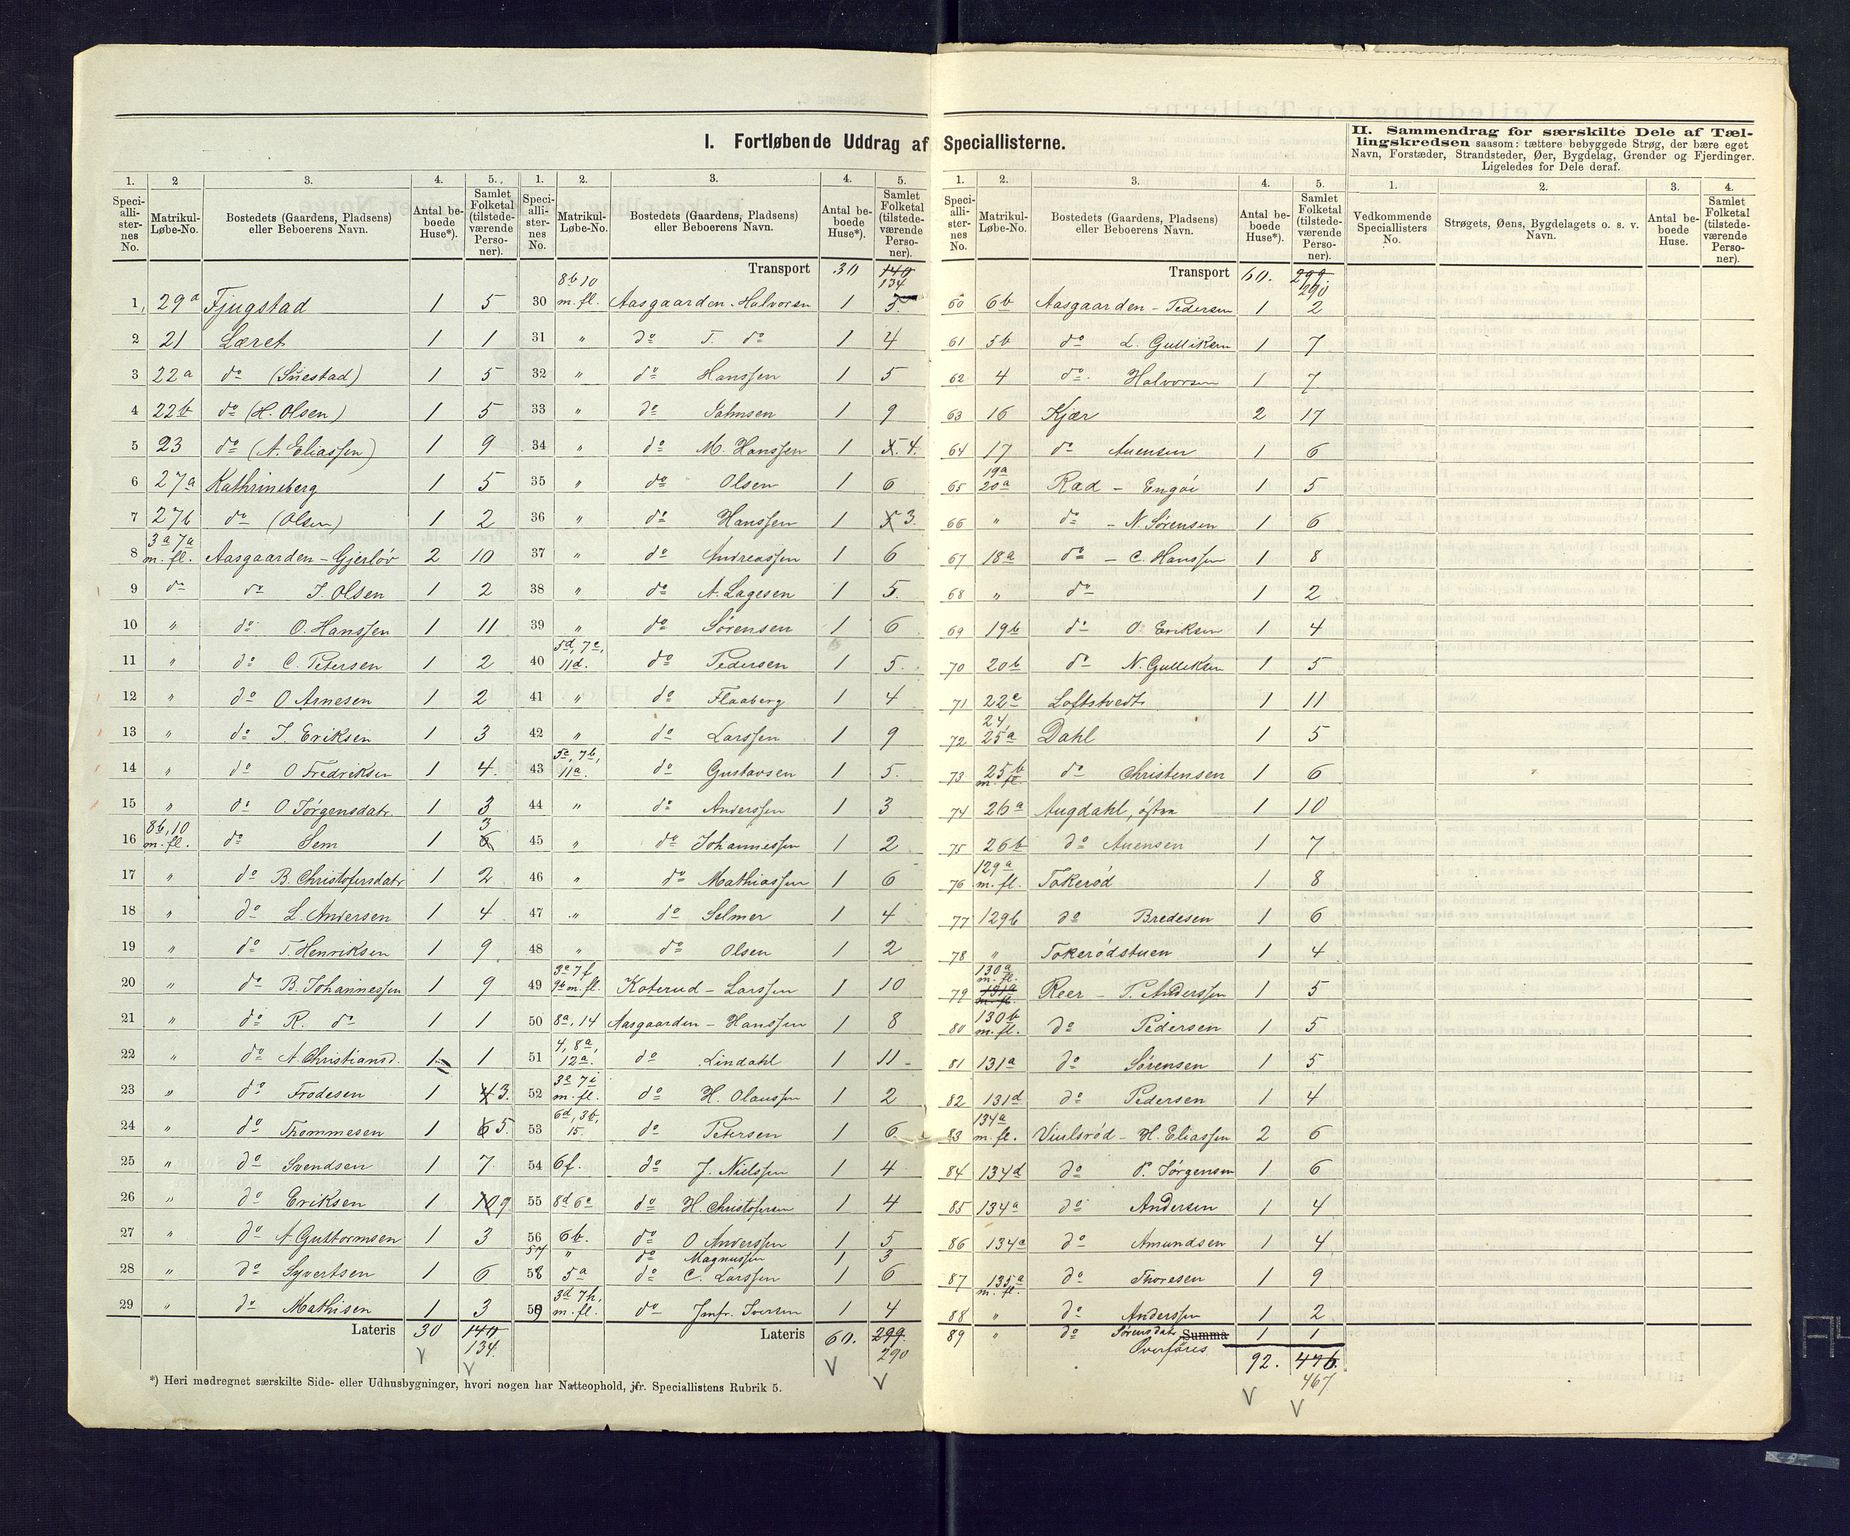 I. Fortløbende Uddrag af Speciallisterne.
II. Sammendrag for særskilte Dele af Tællingskredsen saasom: tættere bebyggede Strøg, der bære eget Navn, Forstæder, Strandsteder, Øer, Bygdelag, Grender og Fjerdinger. Ligeledes for Dele deraf.
1. 2 3. 4. 5.
Speciallisternes No. Matrikul-Løbe-No. Bostedets (Gaardens, Pladsens) eller Beboerens Navn. Antal beboede Huse*). Samlet Folketal (tilstedeværende Personer).
1, 29a Fjugstad 1 5
2 21 Læret 1 1
3 22a do (Süestad) 1 5
4 22b do (H. Olsen) 1 5
5 23 do (A. Eliassen) 1 9
6 27a Kathrineberg 1 5
7 27b do (Olsen) 1 2
8 3a 7a m. fl. Aasgaarden - Gjerløv 2 10
9 do do J. Olsen 1 2
10 " do O. Hanssen 1 11
11 " do C. Petersen 1 2
12 " do O Arnesen 1 2
13 " do J. Eriksen 1 3
14 " do O Fredriksen 1 4.
15 " do O Jørgensdatr. 1 3
16 8b, 10 m. fl. do Sem 1 6 3
17 " do B. Christofersdatr 1 2
18 " do L. Andersen 1 4
19 " do T. Henriksen 1 9
20 " do B. Johannessen 1 9
21 " do R. do 1 1
22 " do A. Christiansd. 1 1
23 " do Frodesen 1 4 3.
24 " do Thommesen 1 6 5.
25 " do Svendsen 1 7
26 " do Eriksen 1 10 9
27 " do A. Guttormsen 1 3
28 " do Syvertsen 1 6
29 " do Mathisen 1 3
Lateris 30 140 134
1. 2. 3. 4. 5.
Speciallisternes No. Matrikul-Løbe-No. Bostedets (Gaardens, Pladsens) eller Beboerens Navn. Antal beboede Huse*). Samlet Folketal (tilstedeværende Personer).
Transport 30 140 134
30 8b 10 m. fl. Aasgaarden - Halvorsen 1 5
31 " do T. do 1 4
32 " do Hanssen 1 5
33 " do Jahnsen 1 9
34 " do M. Hanssen 1 4.
35 " do Olsen 1 6
36 " do Hanssen 1 3.
37 " do Andreassen 1 6
38 " do A. Lagesen 1 5.
39 " do Sørensen 1 6
40 5d, 7e, 11d. do Pedersen 1 5.
41 " do Flaaberg 1 4
42 " do Larssen 1 9
43 5c, 7b, 11a. do Gustavsen 1 5.
44 " do Anderssen 1 3
45 " do Johannessen 1 2
46 " do Mathiassen 1 6
47 " do Selmer 1 4
48 " do Olsen 1 2
49 3e 7f 9b m. fl. Koterud - Larssen 1 10
50 8a, 14 Aasgaarden - Hanssen 1 8
51 4, 8a, 12a. do Lindahl 1 11
52 3e 7i m. fl. do H. Olaussen 1 2
53 6d, 3b, 15. do Petersen 1 6
54 6f. do J. Nielssen 1 4
55 8d 6e do H. Christofersen 1 4
56 6b. do O Anderssen 1 5
57 " do Magnussen 1 3
58 5a do C. Larssen 1 6
59 3d 7h, m. fl. do Jmfr. Iversen 1 4
Lateris 60. 299. 290
1. 2. 3. 4. 5.
Speciallisternes No. Matrikul-Løbe-No. Bostedets (Gaardens, Pladsens) eller Beboerens Navn. Antal beboede Huse*). Samlet Folketal (tilstedeværende Personer).
Transport 60. 299 290
60 6b Aasgaarden - Pedersen 1 2
61 5b do L. Gulliksen 1 7
62 4 do Halvorsen 1 7
63 16 Kjær 2 17
64 17 do Auensen 1 6
65 19a 20a Rad - Engöi 1 5
66 " do - N. Sørensen 1 6
67 18a do - C. Hanssen 1 8
68 " do 1 2
69 19b do O. Eriksen 1 4
70 20b do N. Gulliksen 1 5
71 22c Loftstvedt 1 11
72 24, 25a Dahl 1 5
73 25b m. fl. do Christensen 1 6
74 26a Augdahl, östra 1 10
75 26b do Auensen 1 7
76 129a m. fl. Tokerød 1 8
77 129b do Bredesen 1 6
78 " Tokerødstuen 1 4
79 130a m. fl. 131a m. fl. Reer - T. Anderssen 1 5
80 130b m. fl. do Pedersen 1 5
81 131a do Sørensen 1 5
82 131d do Pedersen 1 4
83 134a m. fl. Viulsrød - H. Eliassen 2 6
84 134d do P. Jørgensen 1 6
85 134a do Andersen 1 4
86 134a do Amundsen 1 4
87 135a m. fl. do Thoresen 1 9
88 " do Anderssen 1 2
89 " do Sørensdatr. Summa 1 1
Overføres 92. 476. 467
1. 2. 3. 4.
Vedkommende Speciallisters No. Strøgets, Øens, Bygdelagets o. s. v. Navn. Antal beboede Huse. Samlet Folketal (tilstedeværende Personer).
*) Heri medregnet særskilte Side- eller Udhusbygninger, hvori nogen har Natteophold, jfr. Speciallistens Rubrik 5.